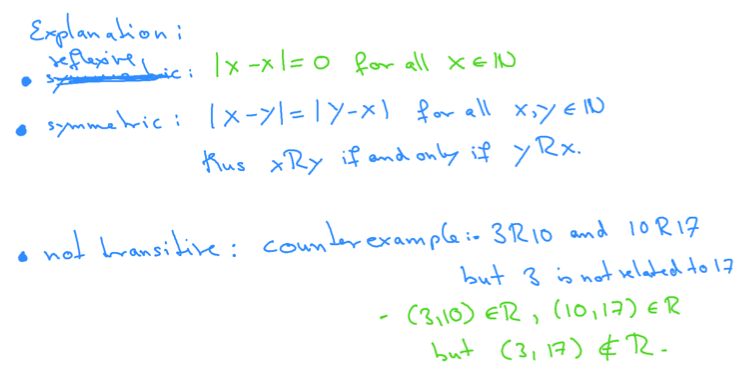 Explanation:
reflexive,
• symmetric: |x-x|=0 for all x∈ℕ
• symmetric: |x-y|=|y-x| for all x,y∈ℕ
thus xRy if and only if yRx.
• not transitive: counterexample:- 3R10 and 10R17
but 3 is not related to 17
- (3,10)∈R, (10,17)∈R
but (3,17)∉R.